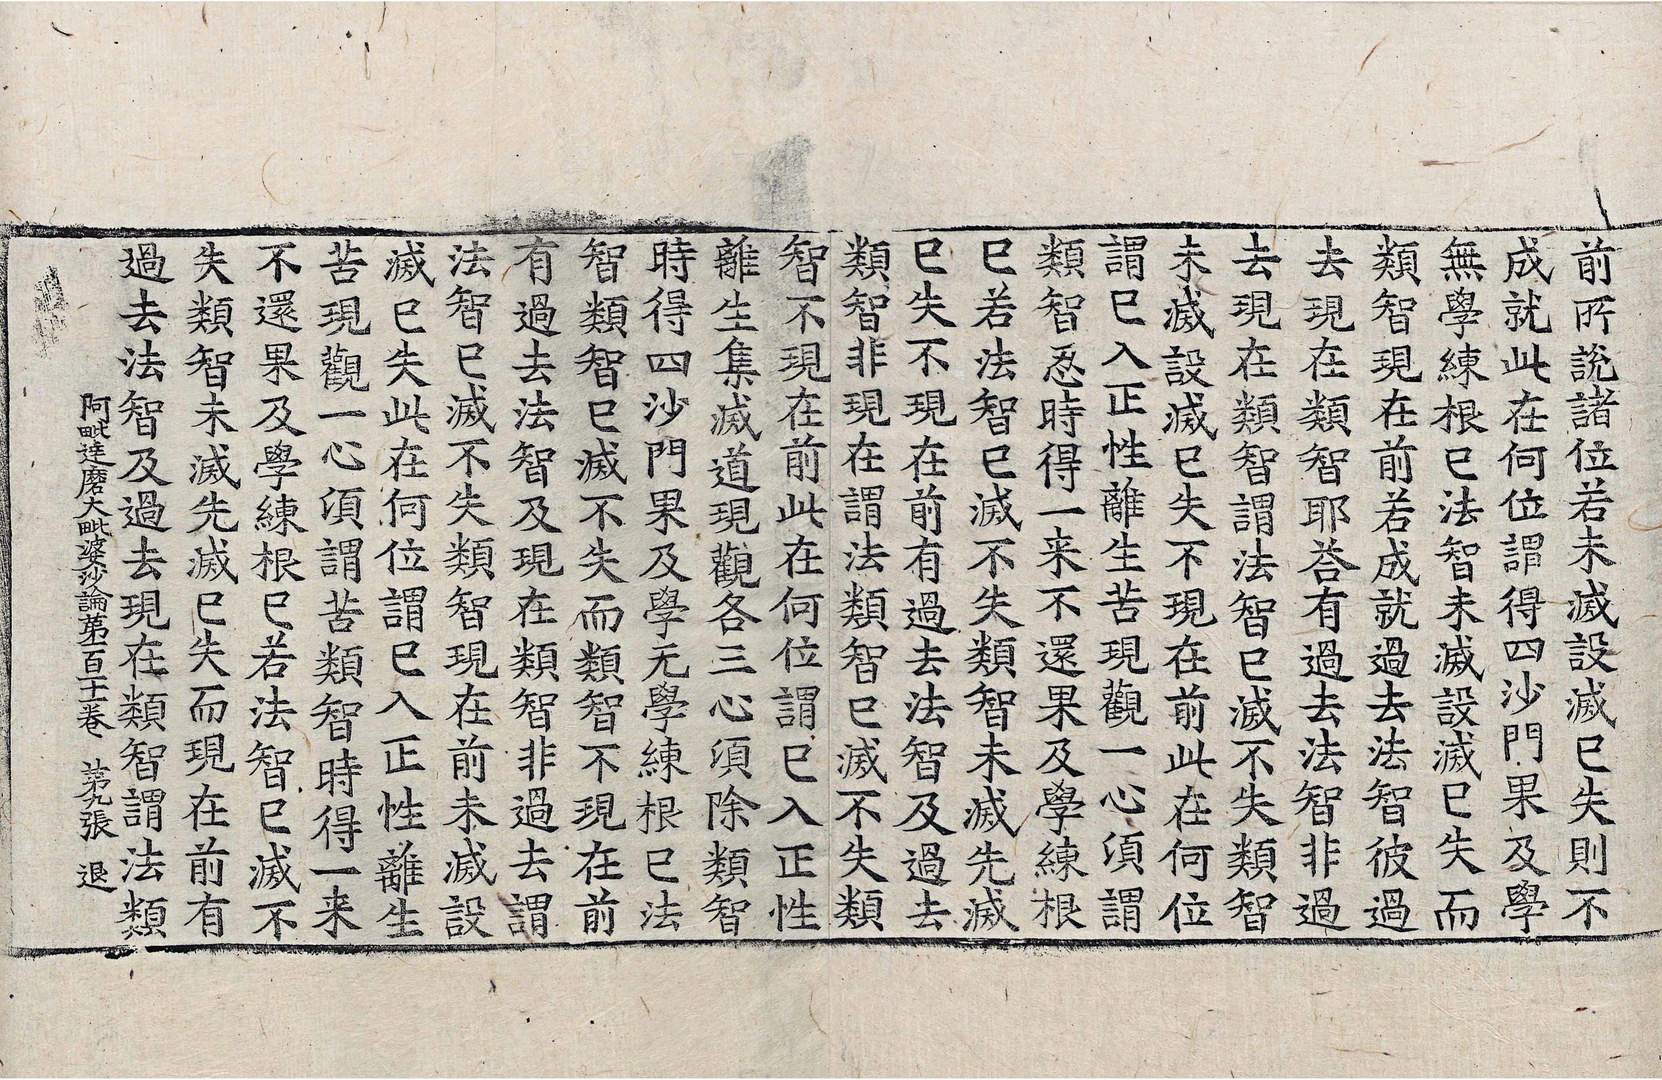 前所說諸位若未滅設滅已失則不
成就此在何位謂得四沙門果及學
無學練根已法智未滅設滅已失而
類智現在前若成就過去法智彼過
去現在類智耶荅有過去法智非過
去現在類智謂法智已滅不失類智
未滅設滅已失不現在前此在何位
謂已入正性離生苦現觀一心須謂
類智忍時得一来不還果及學練根
已若法智已滅不失類智未滅先滅
已失不現在前有過去法智及過去
類智非現在謂法類智已滅不失類
智不現在前此在何位謂已入正性
離生集滅道現觀各三心須除類智
時得四沙門果及學无學練根已法
智類智已滅不失而類智不現在前
有過去法智及現在類智非過去謂
法智已滅不失類智現在前未滅設
滅已失此在何位謂已入正性離生
苦現觀一心須謂苦類智時得一来
不還果及學練根已若法智已滅不
失類智未滅先滅已失而現在前有
過去法智及過去現在類智謂法類
阿毗達磨大毗婆沙論第一百十卷 第九張 退